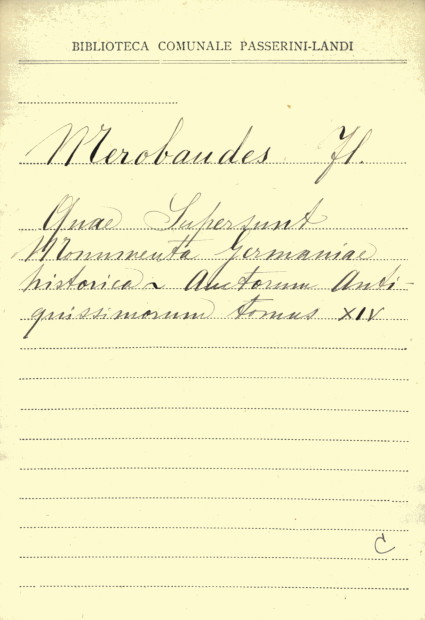 BIBLIOTECA COMUNALE PASSERINI-LANDI
Merobaudes Fl.
Quae Supersunt
Monumenta Germaniae
historica ~ Auctorum Anti-
quissimorum tomus XIV
C